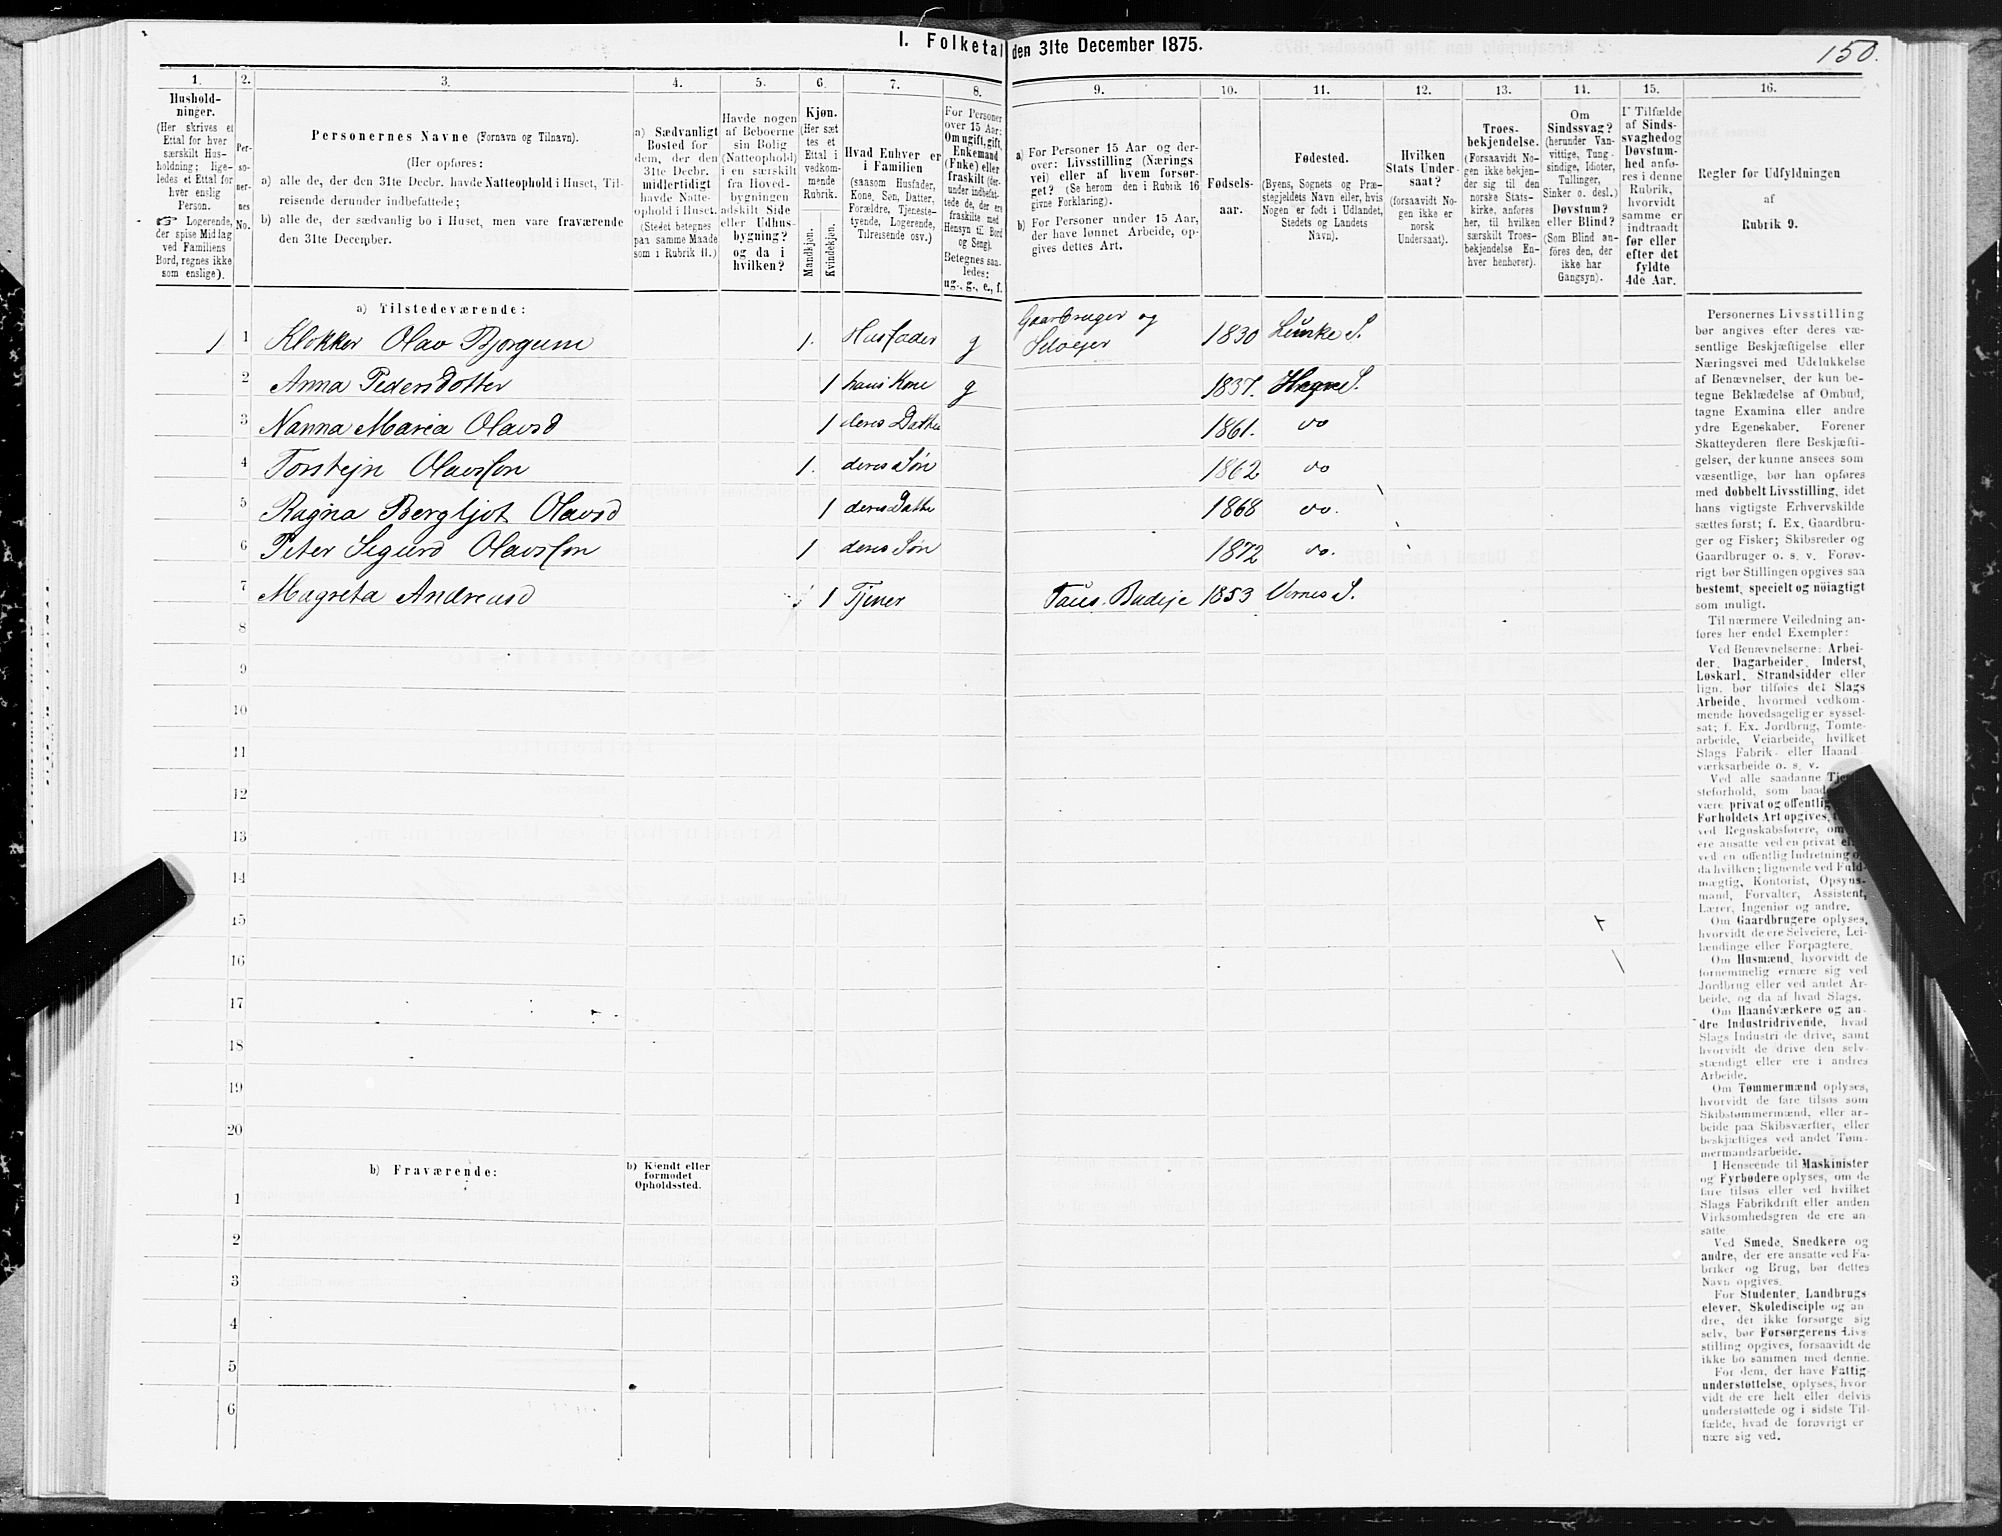 I. Folketal den 31te December 1875.
150.
1.
Hushold-
ninger.
(Her skrives et
Ettal for hver
særskilt Hus-
holdning; lige-
ledes et Ettal for
hver enslig
Person.
☞ Logerende,
der spise Midlag
ved Familiens
Bord, regnes ikke
som enslige).
2.
Per-
so-
ner-
nes
No.
3.
Personernes Navne (Fornavn og Tilnavn).
(Her opføres:
a) alle de, der den 31te Decbr. havde Natteophold i Huset, Til-
reisende derunder indbefattede;
b) alle de, der sædvanlig bo i Huset, men vare fraværende
den 31te December.
4.
a) Sædvanligt
Bosted for
dem, der den
31te Decbr.
midlertidigt
havde Natte-
ophold i Huset.
(Stedet betegnes
paa samme Maade
som i Rubrik 11.)
5.
Havde nogen
af Beboerne
sin Bolig
(Natteophold)
i en særskilt
fra Hoved-
bygningen
adskilt Side
eller Udhus-
bygning?
og da i
hvilken?
6.
Kjøn.
(Her sæt-
tes et
Ettal i
vedkom-
mende
Rubrik.
Mandkjøn.
Kvindekjøn.
7.
Hvad Enhver er
i Familien
(saasom Husfader,
Kone, Søn, Datter,
Forældre, Tjeneste-
tyende, Logerende,
Tilreisende osv.)
8.
For Personer
over 15 Aar:
Om ugift, gift,
Enkemand
(Enke) eller
fraskilt (der-
under indbefat-
tede de, der ere
fraskilte med
Hensyn til Bord
og Seng).
Betegnes saa-
ledes:
ug., g., e., f.
9.
a) For Personer 15 Aar og der-
over: Livsstilling (Nærings
vei) eller af hvem forsør-
get? (Se herom den i Rubrik 16
givne Forklaring).
b) For Personer under 15 Aar,
der have lønnet Arbeide, op-
gives dettes Art.
10.
Fødsels-
aar.
11.
Fødested.
(Byens, Sognets og Præ-
stegjeldets Navn eller, hvis
Nogen er født i Udlandet,
Stedets og Landets
Navn).
12.
Hvilken
Stats Under-
saat?
(forsaavidt No-
gen ikke er
norsk
Undersaat).
13.
Troes-
bekjendelse.
(Forsaavidt No-
gen ikke bekjen-
der sig til den
norske Stats-
kirke, anføres
her, til hvilken
særskilt Troes-
bekjendelse En-
hver henhører).
14.
Om
Sindssvag?
(herunder Van-
vittige, Tung-
sindige, Idioter,
Tullinger,
Sinker o. desl.)
Døvstum?
eller Blind?
(Som Blind an-
føres den, der
ikke har
Gangsyn).
15.
I Tilfælde
af Sinds-
svaghed og
Døvstum-
hed anfø-
res i denne
Rubrik,
hvorvidt
samme er
indtraadt
før eller
efter det
fyldte
4de Aar.
16.
Regler for Udfyldningen
af
Rubrik 9.
a) Tilstedeværende:
1 1 Klokker Olav Bjørgum 1. Husfader g Gaarbruger og Selvejer 1830 Lunke S.
2 Anna Pedersdotter 1 hans Kone g 1837. Hegre S.
3 Nanna Maria Olavsd 1 deres Datter 1861. do
4 Torstejn Olavsson 1. deres Søn 1862 do
5 Ragna Bergljot Olavsd 1 deres Datte 1868 do.
6 Peter Sigurd Olavsson 1 deres Søn 1872 do.
7 Magreta Andreasd 1 Tjener Taus. Budeje 1853 Vernes S.
8
9
10
11
12
13
14
15
16
17
18
19
20
b) Fraværende:
b) Kjendt eller
formodet
Opholdssted.
1
2
3
4
5
6
Personernes Livsstilling
bør angives efter deres væ-
sentlige Beskjæftigelse eller
Næringsvei med Udelukkelse
af Benævnelser, der kun be-
tegne Beklædelse af Ombud,
tagne Examina eller andre
ydre Egenskaber. Forener
Skatteyderen flere Beskjæfti-
gelser, der kunne ansees som
væsentlige, bør han opføres
med dobbelt Livsstilling, idet
hans vigtigste Erhvervskilde
sættes først; f. Ex. Gaardbru-
ger og Fisker; Skibsreder og
Gaardbruger o. s. v. Forøv-
rigt bør Stillingen opgives saa
bestemt, specielt og nøiagtigt
som muligt.
Til nærmere Veiledning an-
føres her endel Exempler:
Ved Benævnelserne: Arbei-
der, Dagarbeider, Inderst,
Løskarl, Strandsidder eller
lign. bør tilføies det Slags
Arbeide, hvormed vedkom-
mende hovedsagelig er syssel-
sat; f. Ex. Jordbrug, Tomte-
arbeide, Veiarbeide, hvilket
Slags Fabrik- eller Haand-
værksarbeide o. s. v.
Ved alle saadanne Tje
steforhold, som baade
være privat og offentlig
Forholdets Art opgives,
ved Regnskabsførere, om
ere ansatte ved en privat el
ved en offentlig Indretning o
da hvilken; lignende ved Fuld-
mægtig, Kontorist, Opsyns-
mand, Forvalter, Assistent,
Lærer, Ingeniør og andre.
Om Gaardbrugere oplyses,
hvorvidt de ere Selveiere, Lei-
lændinge eller Forpagtere.
Om Husmænd, hvorvidt de
fornemmelig ernære sig ved
Jordbrug eller ved andet Ar-
beide, og da af hvad Slags.
Om Haandværkere og an-
dre Industridrivende, hvad
Slags Industri de drive, samt
hvorvidt de drive den selv-
stændigt eller ere i andres
Arbeide.
Om Tømmermænd oplyses,
hvorvidt de fare tilsøs som
Skibstømmermænd, eller ar-
beide paa Skibsværfter, eller
beskjæftiges ved andet Tøm-
mermandsarbeide.
I Henseende til Maskinister
og Fyrbødere oplyses, om de
fare tilsøs eller ved hvilket
Slags Fabrikdrift eller anden
Virksomhedsgren de ere an-
satte.
Ved Smede, Snedkere og
andre, der ere ansatte ved Fa-
briker og Brug, bør dettes
Navn opgives.
For Studenter, Landbrugs
elever, Skoledisciple og an-
dre, der ikke forsørge sig
selv, bør Forsørgerens Livs-
stilling opgives, forsaavidt de
ikke bo sammen med denne.
For dem, der have Fattig-
understøttelse, oplyses, hvor-
vidt de ere helt eller delvis
understøttede og i sidste Til-
fælde, hvad de forøvrigt er
nære sig ved.